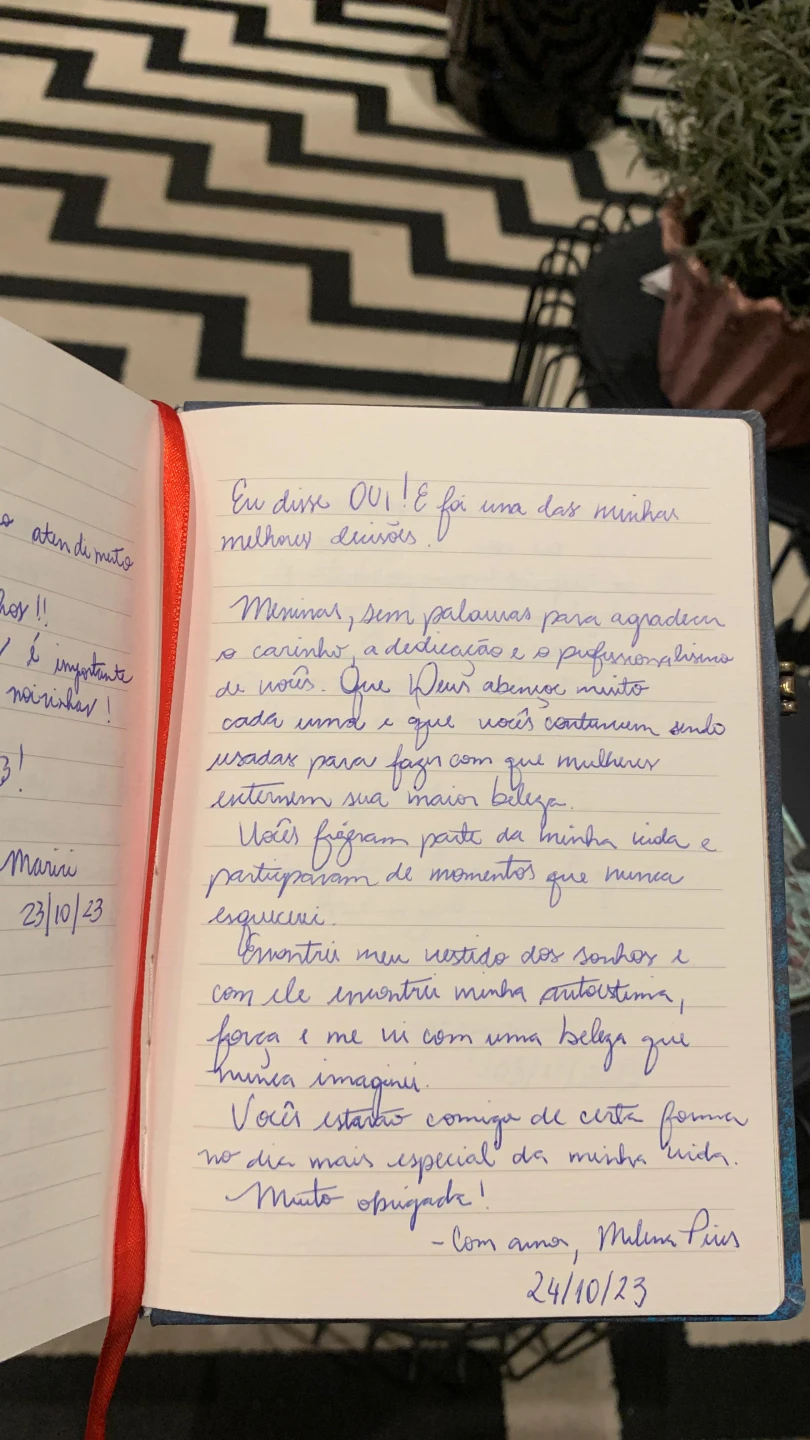 o atendimento
!!
é importante
noivinhas!
3!
Mariri
23/10/23
Eu disse OUI! E foi uma das minhas
melhores decisões.
Meninas, sem palavras para agradecer
o carinho, a dedicação e o profissionalismo
de vocês. Que Deus abençoe muito
cada uma e que vocês continuem sendo
usadas para fazer com que mulheres
externem sua maior beleza.
Vocês fizeram parte da minha vida e
participaram de momentos que nunca
esquecerei.
Encontrei meu vestido dos sonhos e
com ele encontrei minha autoestima,
força e me vi com uma beleza que
nunca imaginei.
Vocês estarão comigo de certa forma
no dia mais especial da minha vida.
Muito obrigada!
- Com amor, Milena Pires
24/10/23